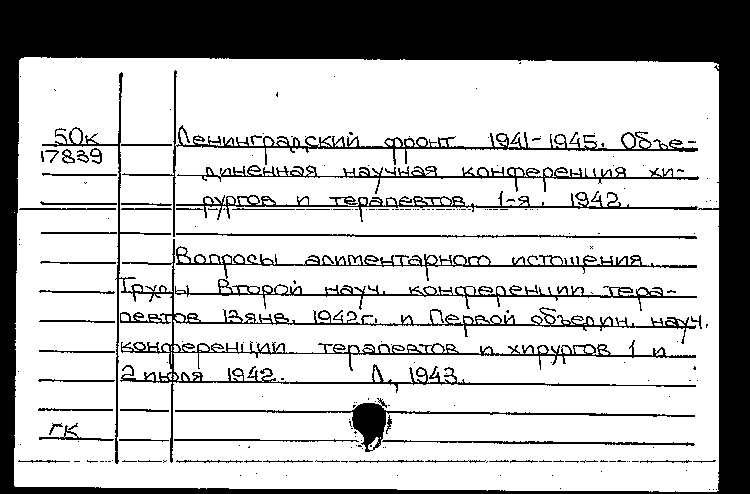 50к
17839
Ленинградский фронт 1941-1945. Объе-
диненная научная конференция хи-
рургов и терапевтов, 1-я. 1942.
Вопросы алиментарного истощения.
Труды Второй науч. конференции тера-
певтов 13 янв. 1942г. и Первой объедин. науч.
конференции терапевтов и хирургов 1 и
2 июля 1942. Л., 1943.
ГК